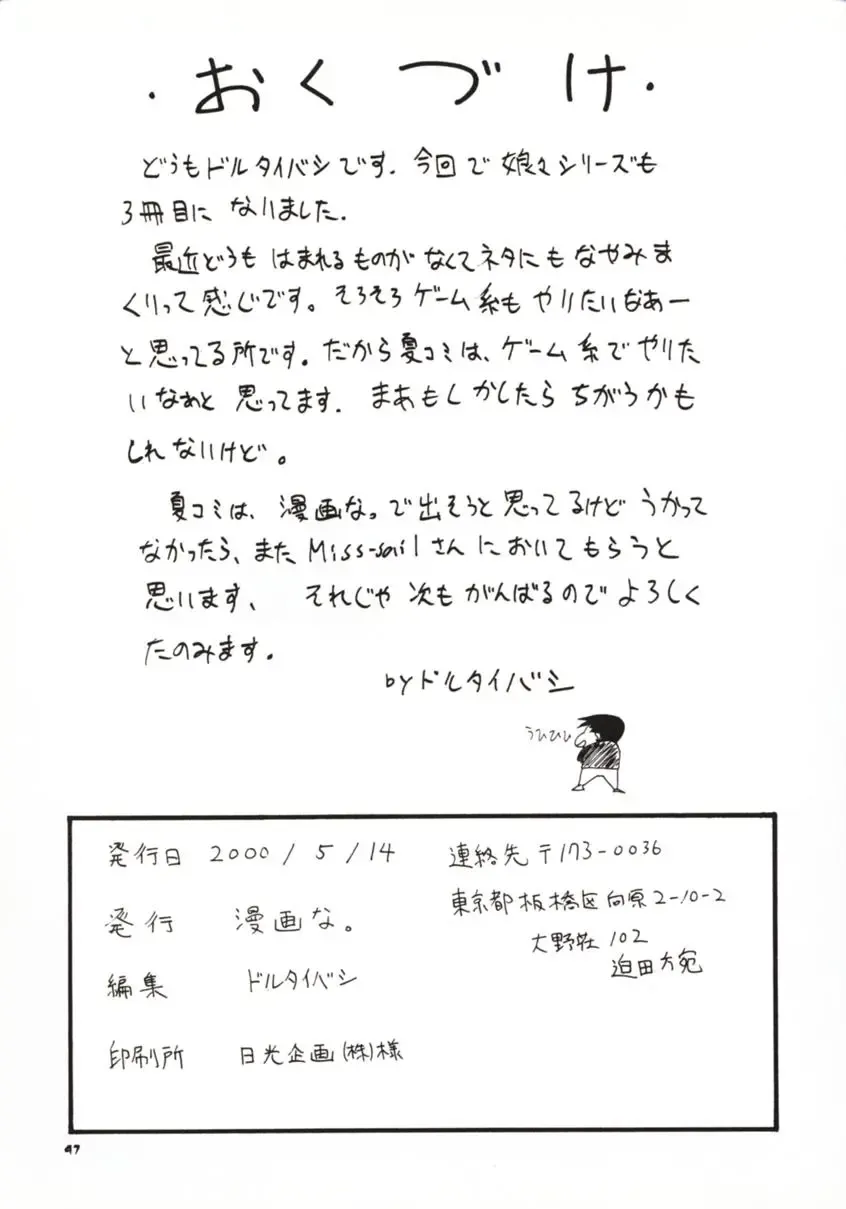 ・おくづけ・
どうもドルタイバシです. 今回で娘々シリーズも
3冊目に なりました.
最近どうも はまれるものが なくてネタにも なやみま
くりって 感じです。そろそろゲーム系も やりたいなあー
と思ってる所です。だから夏コミは、ゲーム系で やりた
いなぁと 思ってます. まあもしかしたら ちがうかも
しれないけど。
夏コミは、漫画な。で出そうと思ってるけど うかって
なかったら、また Miss-sailさん においてもらうと
思います、 それじゃ 次も がんばるので よろしく
たのみます。
by ドルタイバシ
うひひひ
発行日 2000/5/14
発行 漫画な。
編集 ドルタイバシ
印刷所 日光企画(株)様
連絡先 〒173-0036
東京都板橋区向原2-10-2
大野荘 102
迫田方宛
47